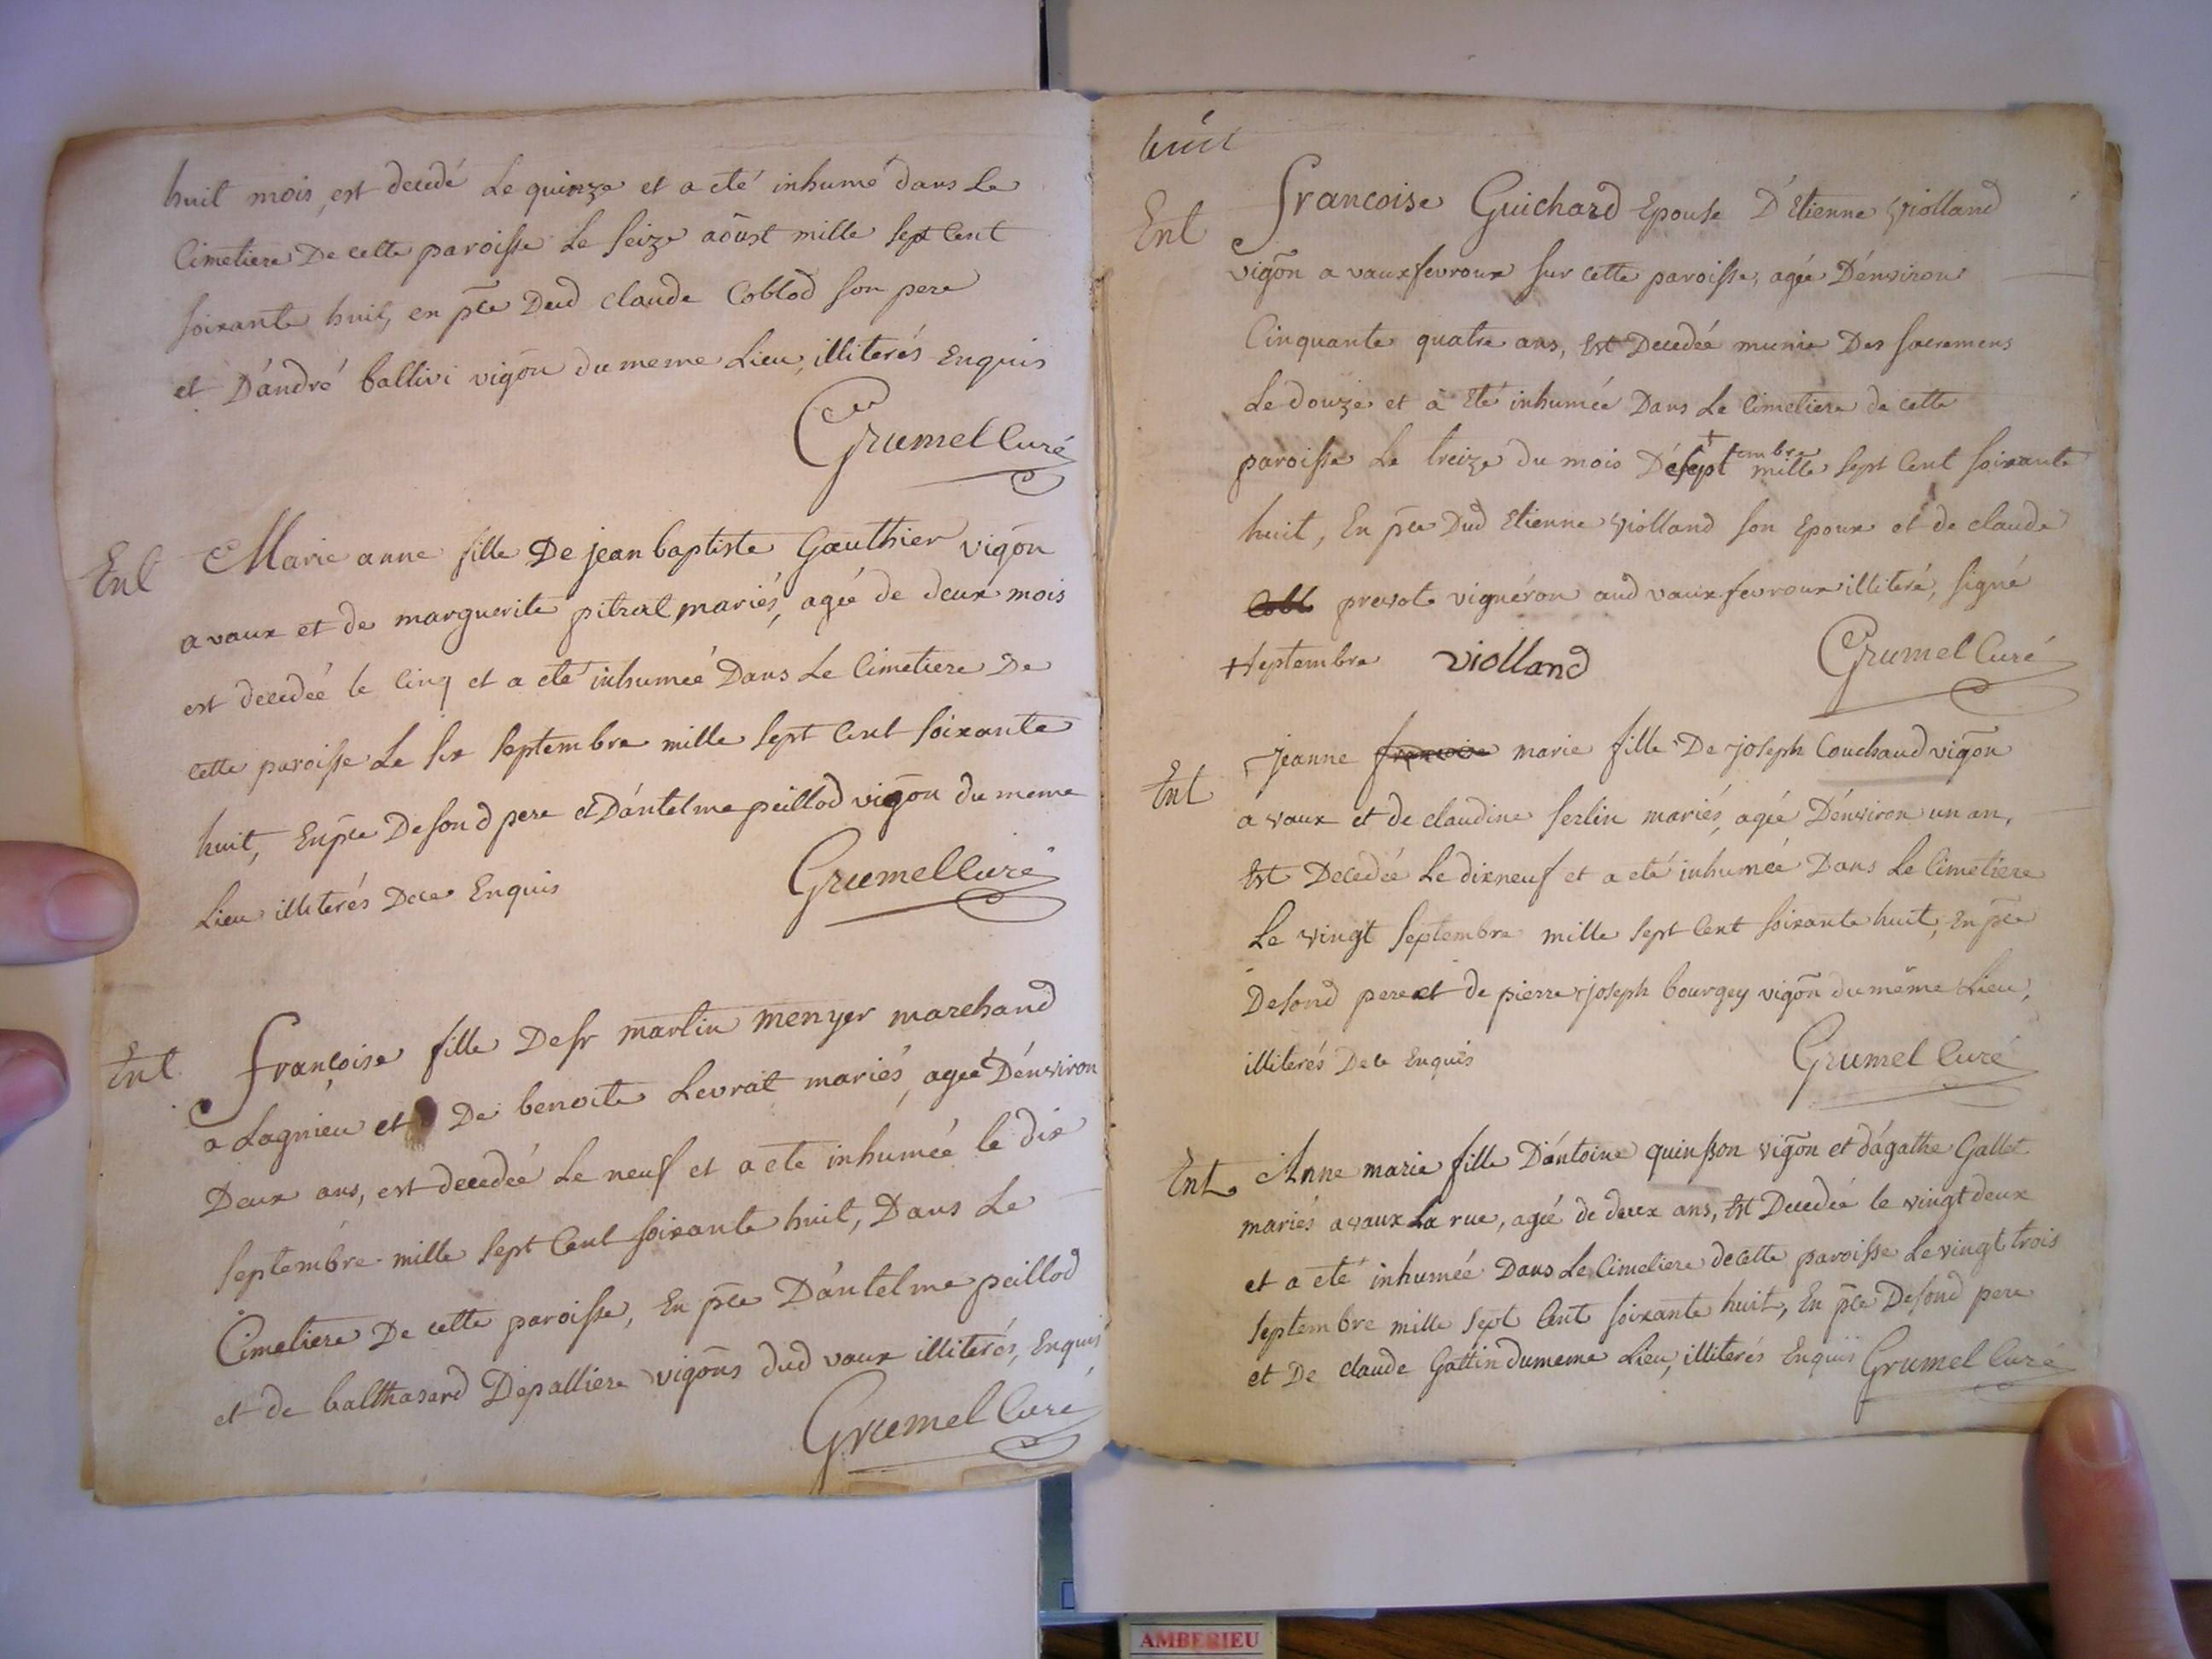 huit mois, est decedé Le quinze et a eté inhumé dans Le
Cimetiere De cette paroisse Le seize aoust mille sept Cent
soixante huit, en pce Dud claude Coblod son pere
et D'andré ballivi vigon du meme Lieu, illiterés Enquis
Grumel Curé
Ent Marie anne fille De jean baptiste Gauthier vigon
a vaux et de marguerite pitrat mariés, agée de deux mois
est decedée le Cinq et a eté inhumée Dans Le Cimetiere De
cette paroisse Le six septembre mille sept Cent soixante
huit, En pce Desond pere et D'antelme peillod vigon du meme
Lieu illiterés Dece Enquis Grumel Curé
Ent françoise fille De sr martin menyer marchand
a Lagnieu et De benoite Levrat mariés, agée D'environ
Deux ans, est decedée Le neuf et a eté inhumée le dix
septembre mille sept Cent soixante huit, Dans Le
Cimetiere De cette paroisse, En pce D'antelme peillod
et de balthasard Depalliere vigons dud vaux illiterés, Enquis
Grumel Curé
huit
Ent francoise Guichard Epouse D'Etienne violland
vigon a vauxfevroux sur cette paroisse, agée D'environ
Cinquante quatre ans, Est Decedée munie Des sacremens
Le douze et a eté inhumée Dans Le Cimetiere de cette
paroisse Le treize du mois De sept+embre mille sept Cent soixante
huit, En pce Dud Etienne violland son Epoux et de claude
Cobl prevot vigneron aud vauxfevroux illiteré, signé
+septembre violland Grumel Curé
Ent jeanne francoise marie fille De joseph Couchaud vigon
a vaux et de claudine serlin mariés, agée D'environ un an,
Est Decedée Le dixneuf et a eté inhumée Dans Le Cimetiere
Le vingt septembre mille sept Cent soixante huit, En pce
Desond pere et de pierre joseph bourgey vigon du même Lieu,
illiterés Dece Enquis Grumel Curé
Ent Anne marie fille D'antoine quinsson vigon et d'agathe Gallet
mariés a vaux La rue, agée de deux ans, Est Decedée le vingt deux
et a eté inhumée Dans Le Cimetiere de cette paroisse Le vingt trois
septembre mille sept Cent soixante huit, En pce Desond pere
et De claude Gattin du meme Lieu, illiterés Enquis Grumel Curé
AMBERIEU